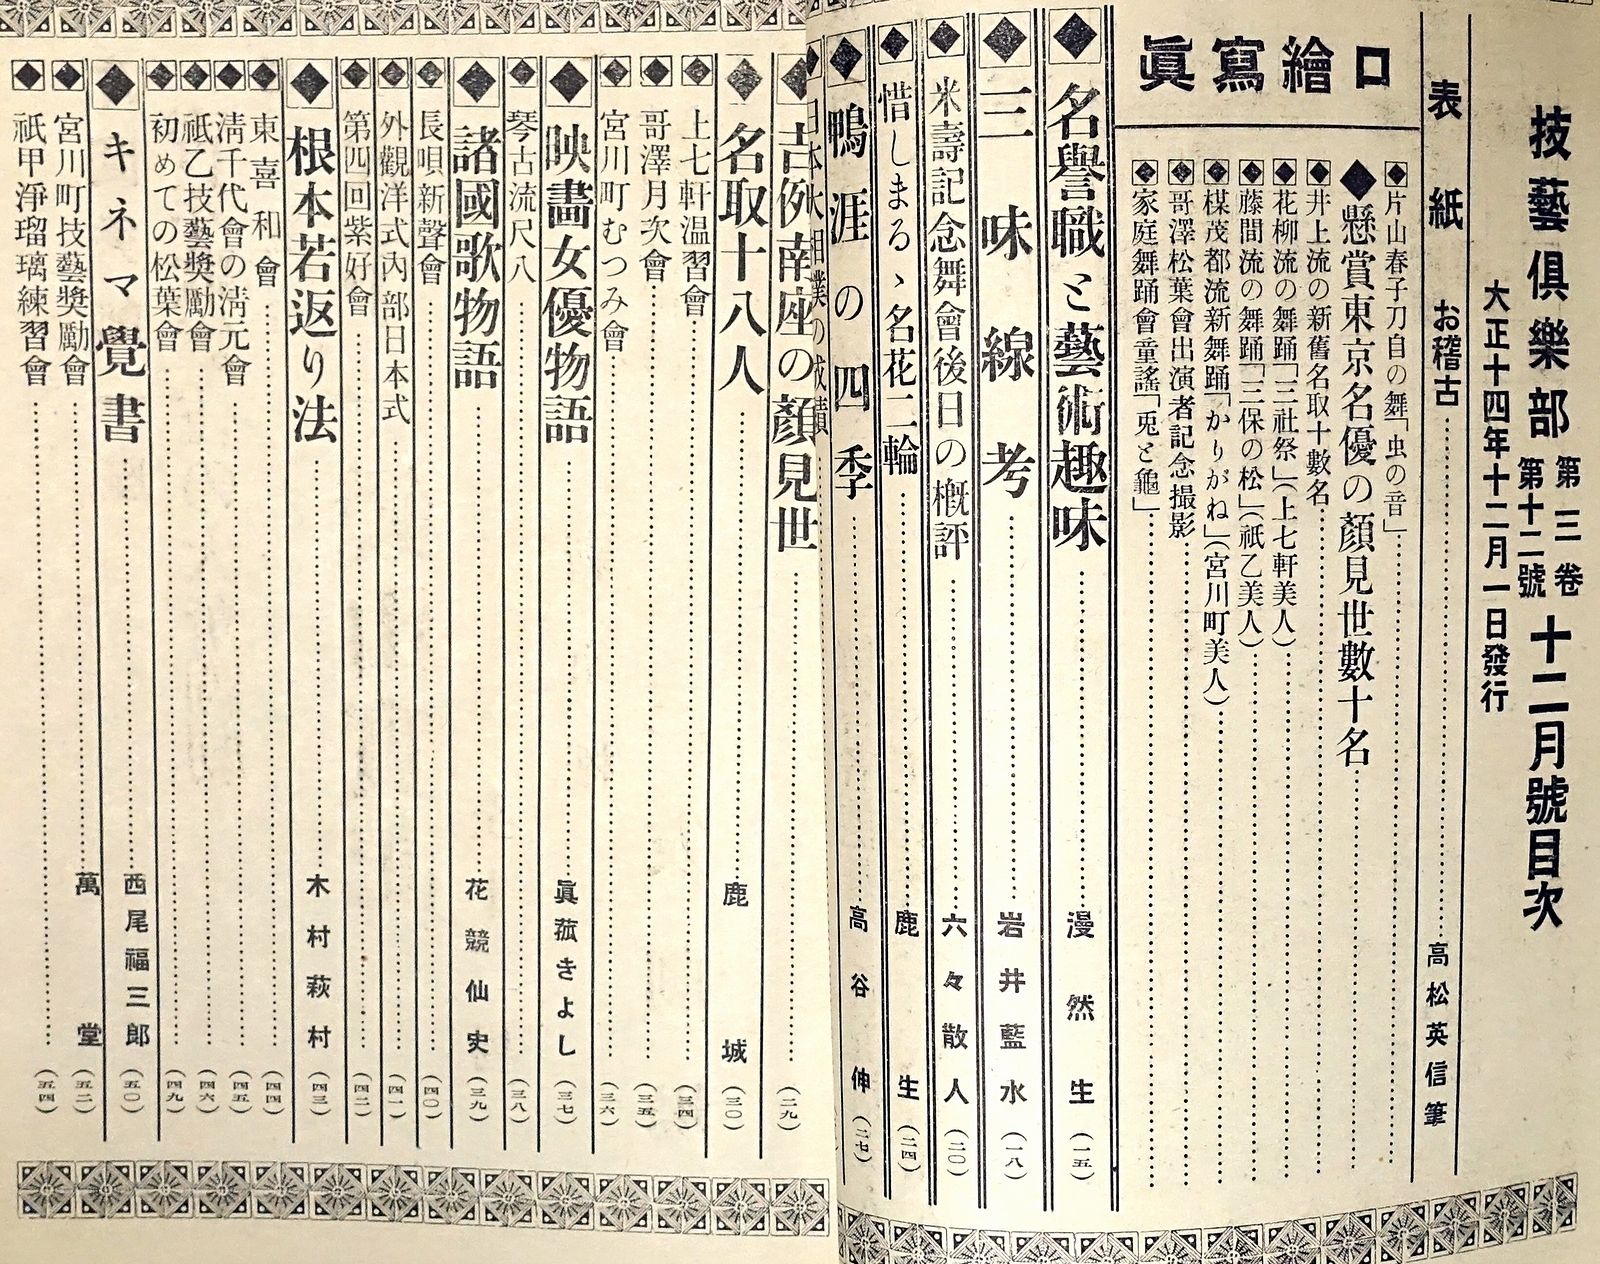 技藝倶樂部 第三巻 第十二號 十二月號目次
大正十四年十二月一日發行
表紙 お稽古 高松英信筆
口繪寫眞
片山春子刀自の舞「虫の音」
懸賞東京名優の顏見世數十名
井上流の新舊名取十數名
花柳流の舞踊「三社祭」(上七軒美人)
藤間流の舞踊「三保の松」(祇乙美人)
楳茂都流新舞踊「かりがね」(宮川町美人)
哥澤松葉會出演者記念撮影
家庭舞踊會童謠「兎と龜」
名譽職と藝術趣味 漫然生 (一五)
三味線考 岩井藍水 (一八)
米壽記念舞會後日の概評 六々散人 (二〇)
惜しまるゝ名花二輪 鹿生 (二四)
鴨涯の四季 高谷伸 (二七)
日本大相撲の成績
吉例南座の顏見世 (二九)
名取十八人 鹿城 (三〇)
上七軒温習會 (三四)
哥澤月次會 (三五)
宮川町むつみ會 (三六)
映畫女優物語 眞菰きよし (三七)
琴古流尺八 (三八)
諸國歌物語 花競仙史 (三九)
長唄新聲會 (四〇)
外觀洋式内部日本式 (四一)
第四回紫好會 (四二)
根本若返り法 木村萩村 (四三)
東喜和會 (四四)
清千代會の清元會 (四五)
祇乙技藝奬勵會 (四六)
初めての松葉會 (四九)
キネマ覺書 西尾福三郎 (五〇)
宮川町技藝奬勵會 萬堂 (五二)
祇甲淨瑠璃練習會 (五四)